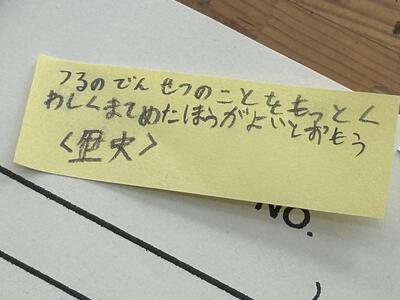 つるのでんせつのことをもっとく
わしくまとめたほうがよいとおもう
<歴史>
NO.